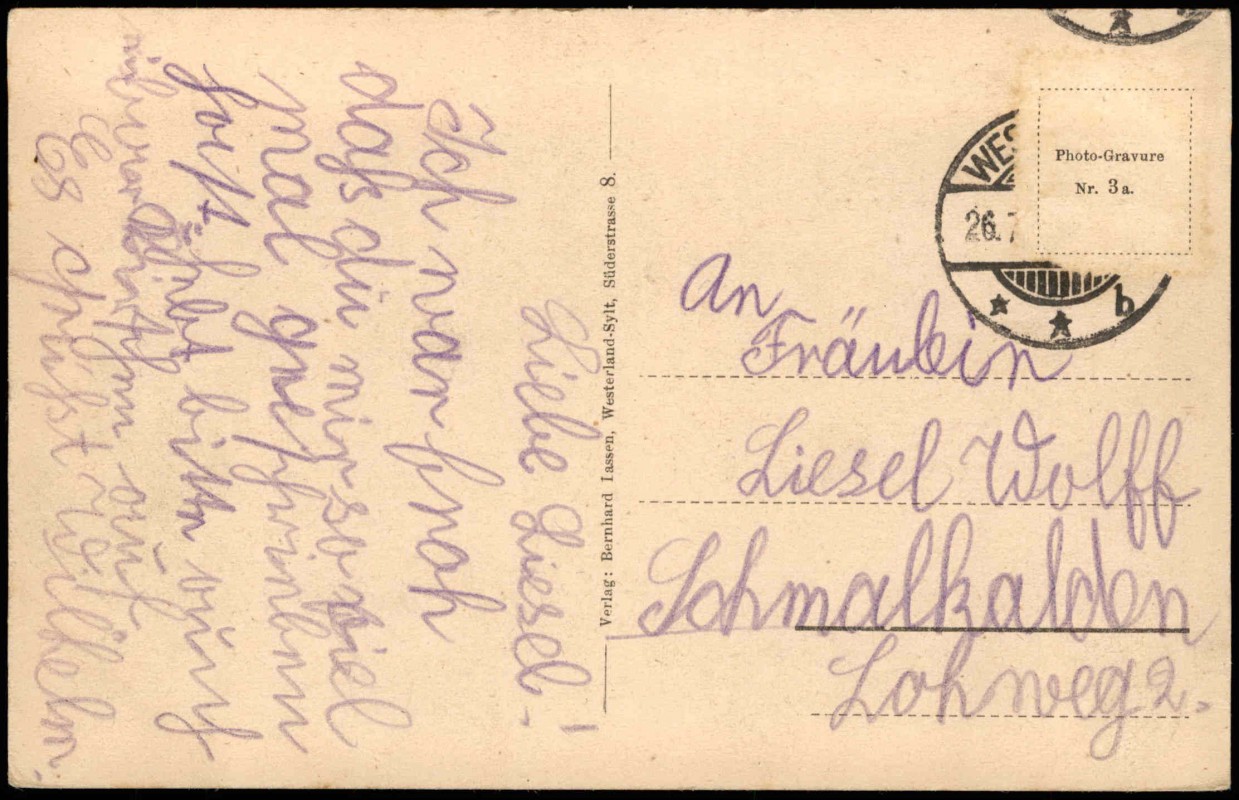 Liebe Liesel!
Ich war froh
daſs du mir so viel
mal geschrieben
bitte
auf
Es grüſst Wilhelm.
Verlag: Bernhard Lassen, Westerland-Sylt, Süderstrasse 8.
WES
26.7
b
Photo-Gravure
Nr. 3a.
An
Fräulein
Liesel Wolff
Schmalkalden
Lohweg 2.